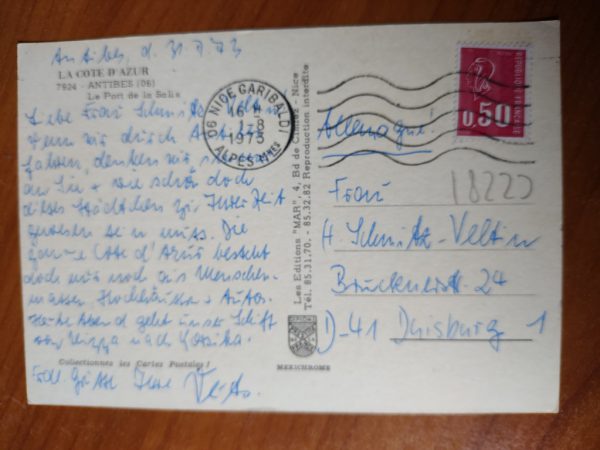 Antibes, d. 31.7.73
LA COTE D'AZUR
7924 - ANTIBES (06)
Le Port de la Salis
Liebe Frau Schmitz-Veltin
wenn wir durch
fahren, denken wir
an Sie + wie schön doch
dieses Städtchen zu Ihrer Zeit
gewesen sein muss. Die
ganze Cote d'Azur besteht
doch nur noch aus Menschen-
massen Hochhäuser + Autos.
Heute Abend geht unser Schiff
von Nizza nach Korsika.
Collectionnez les Cartes Postales !
Grüße Ihre
06 NICE GARIBALDI
16 H
1-8
1973
ALPES-MMES
Les Editions "MAR", 4, Bd de Cimiez - Nice
Tél. 85.31.70. - 85.32.82 Reproduction interdite
MEXICHROME
0,50
Allemagne!
18223
Frau
H. Schmitz-Veltin
Brucknerstr. 24
D-41 Duisburg 1